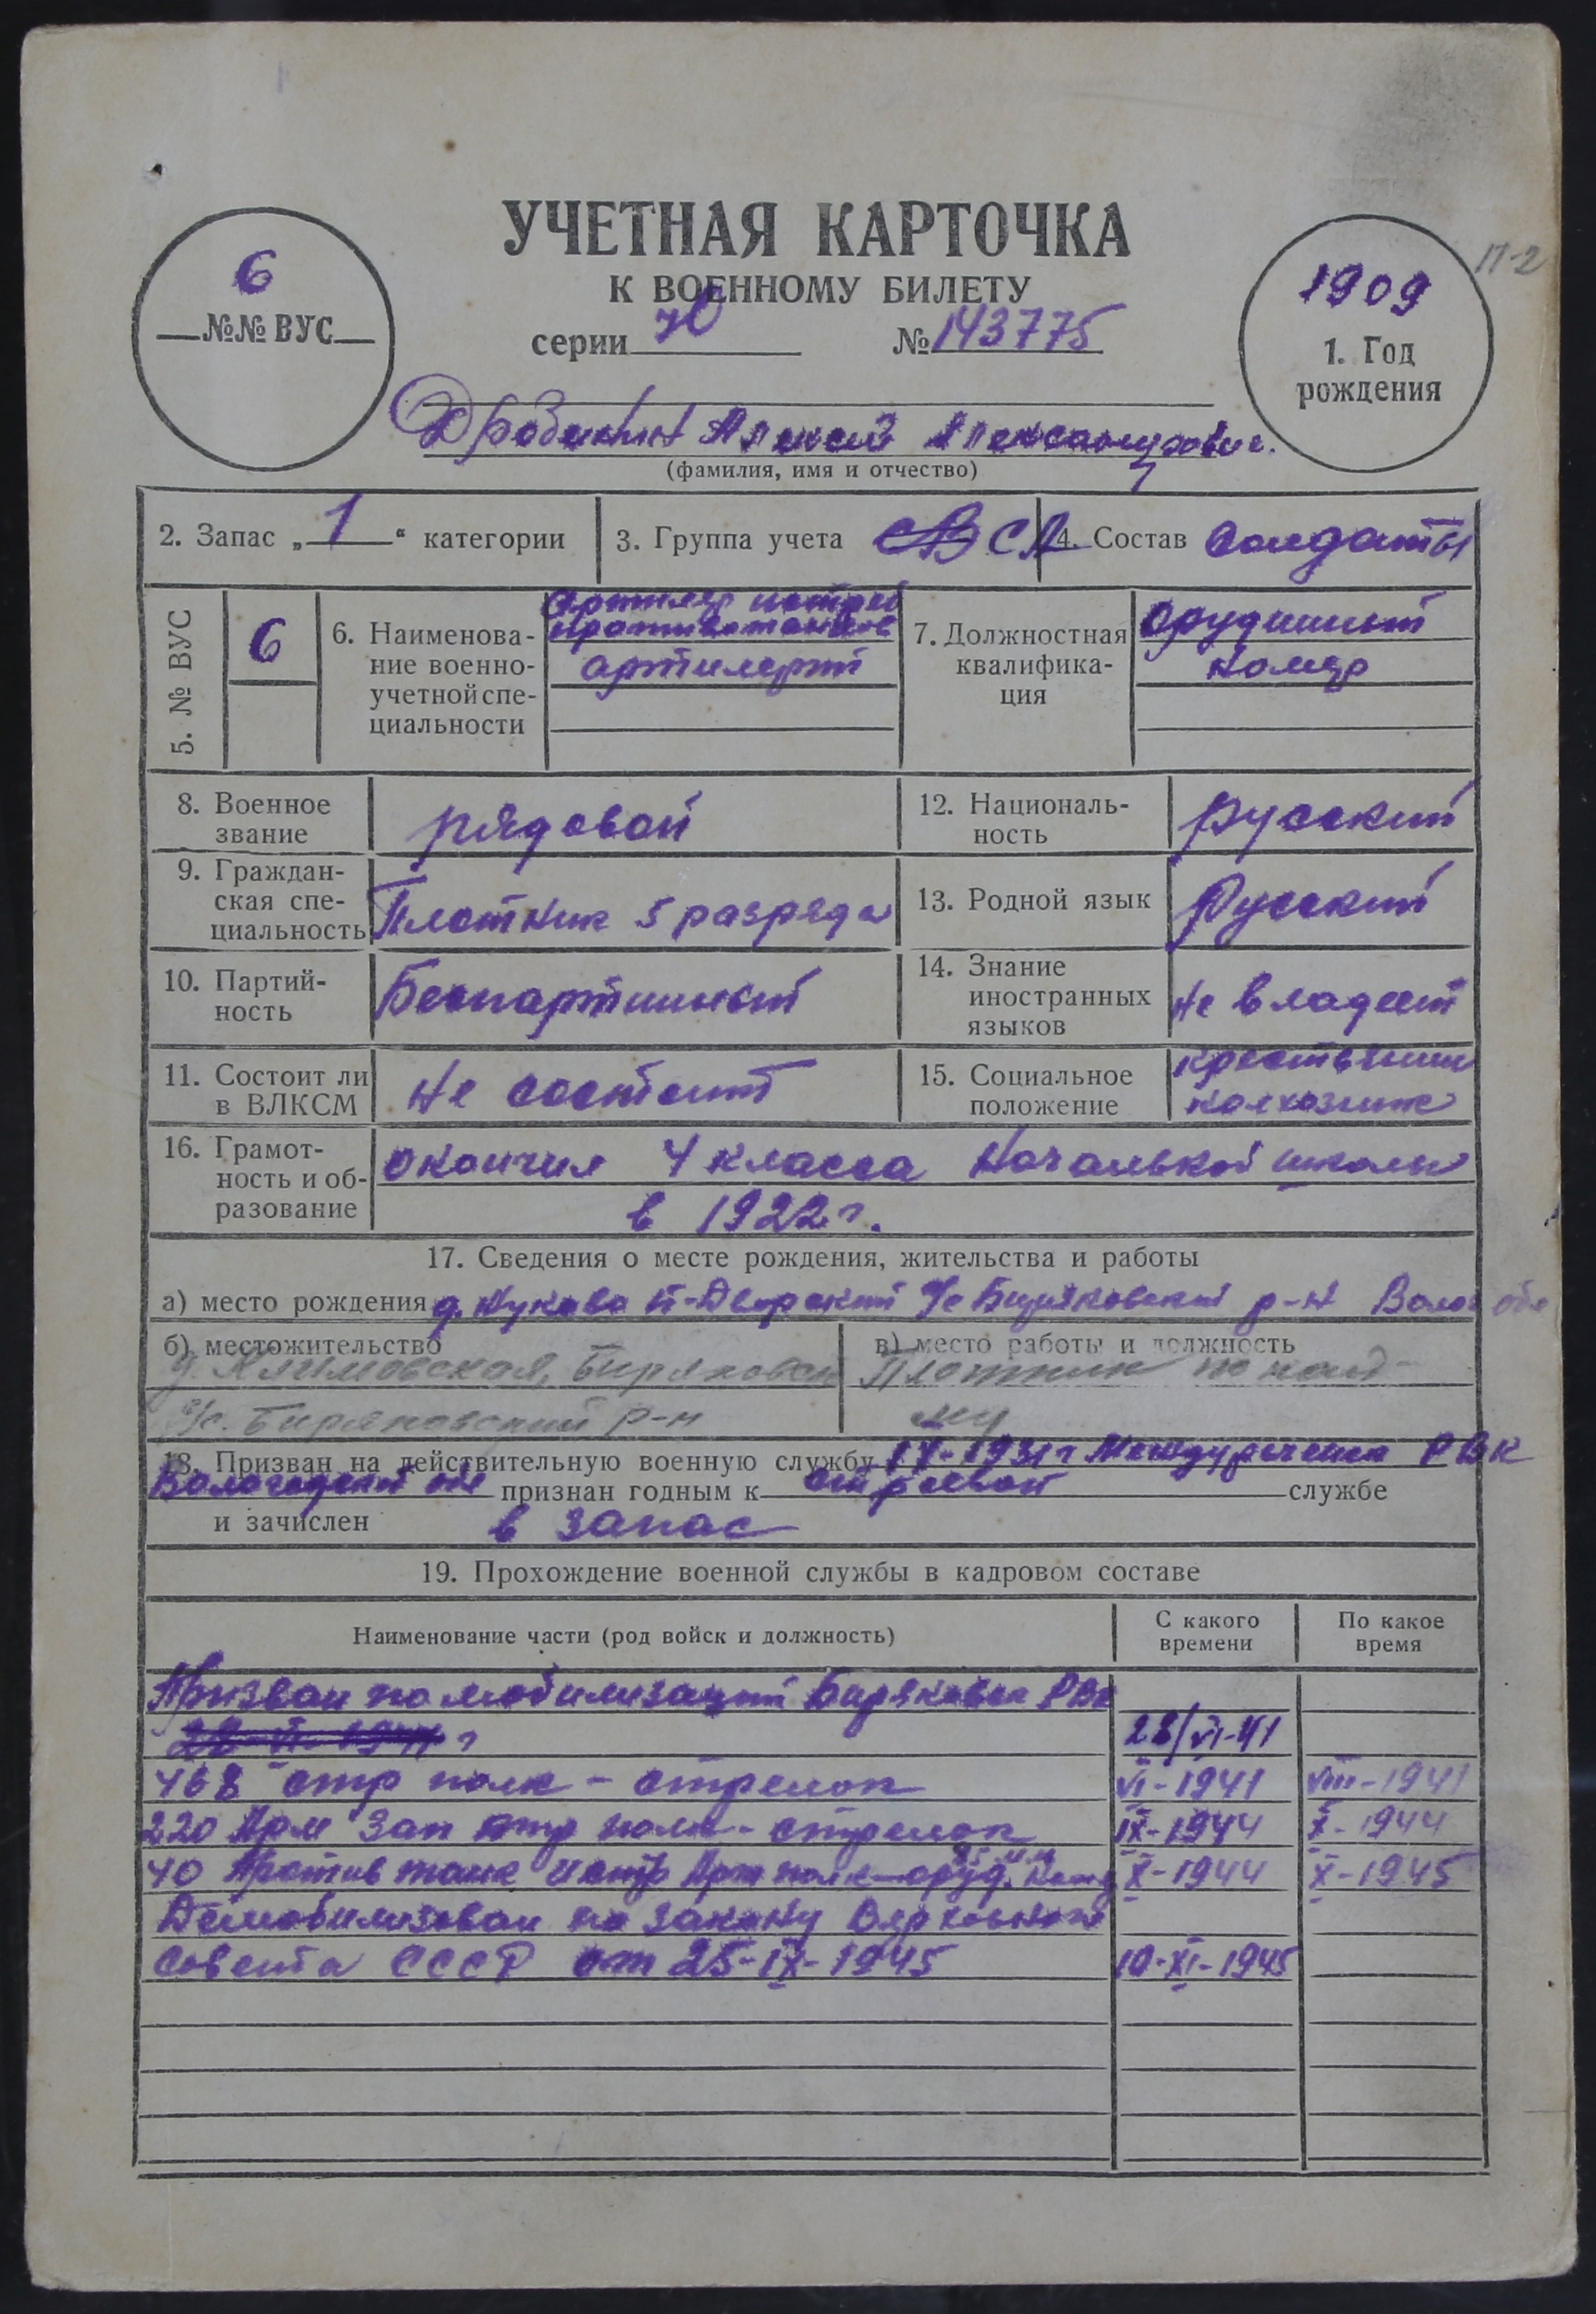 П-2
6
№№ ВУС
УЧЕТНАЯ КАРТОЧКА
К ВОЕННОМУ БИЛЕТУ
серии № 143775
1909
1. Год
рождения
Алексей Александрович.
(фамилия, имя и отчество)
2. Запас „ 1 “ категории
3. Группа учета СА
4. Состав Солдаты
5. № ВУС
6
6. Наименова-
ние военно-
учетной спе-
циальности
Артилер истреб
противотанков
артилерии
7. Должностная
квалифика-
ция
Орудийный
номер
8. Военное
звание
рядовой
12. Националь-
ность
русский
9. Граждан-
ская спе-
циальность
Плотник 5 разряда
13. Родной язык
Русский
10. Партий-
ность
Беспартийный
14. Знание
иностранных
языков
Не владеет
11. Состоит ли
в ВЛКСМ
Не состоит
15. Социальное
положение
крестьянин
колхозник
16. Грамот-
ность и об-
разование
окончил 4 класса Начальной школы
в 1922 г.
17. Сведения о месте рождения, жительства и работы
а) место рождения д. с/с Биряковский р-н Волог обл
б) местожительство
Биряковский
с/с. Биряковский р-н
в) место работы и должность
Плотник по най-
му
18. Призван на действительную военную службу 1931 г Междуреченск РВК
Вологодской обл признан годным к строевой службе
и зачислен в запас
19. Прохождение военной службы в кадровом составе
Наименование части (род войск и должность)
С какого
времени
По какое
время
Призван по мобилизации Биряковск РВК
22-VI-1941 г 28/VI-41
468 стр полк - стрелок VI-1941 VIII-1941
220 Арм Зап стр полк - стрелок IX-1944 X-1944
40 Против танк Истр Арт полк - оруд. X-1944 X-1945
Демобилизован по закону Верховного
Совета СССР от 25-IX-1945 10-XI-1945